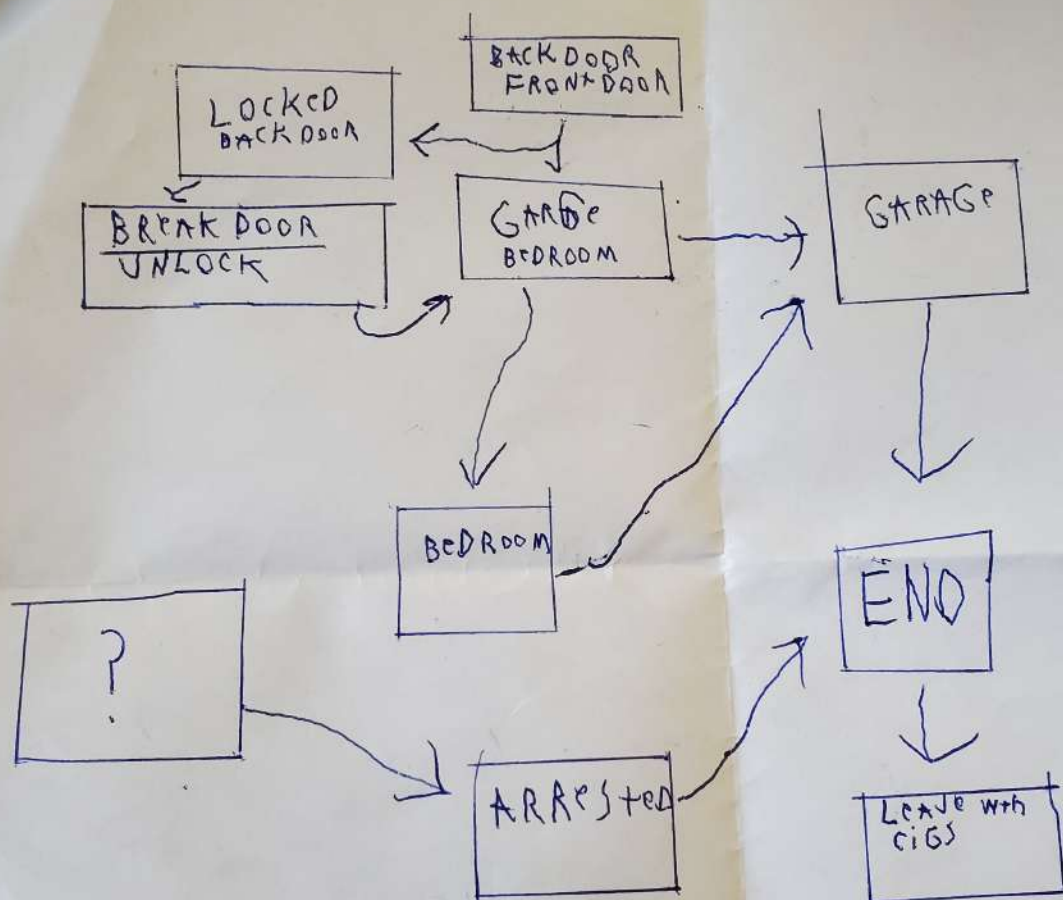 BACK DOOR
FRONT DOOR
LOCKED
BACK DOOR
BREAK DOOR
UNLOCK
GARGe
BEDROOM
GARAGe
BEDROOM
END
?
ARResteD
LEAVE WITH
CiGS